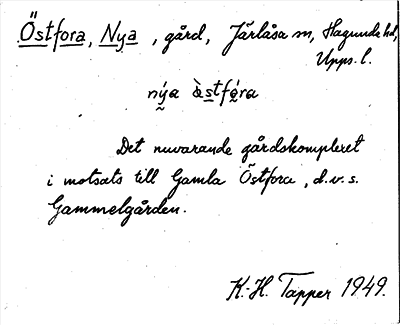 Östfora, Nya, gård, Järlåsa sn, Hagunda hd,
Upps. l.
nýa ὰstfora
Det nuvarande gårdskomplexet
i motsats till Gamla Östfora, d.v.s.
Gammelgården.
K.-H. Tapper 1949.